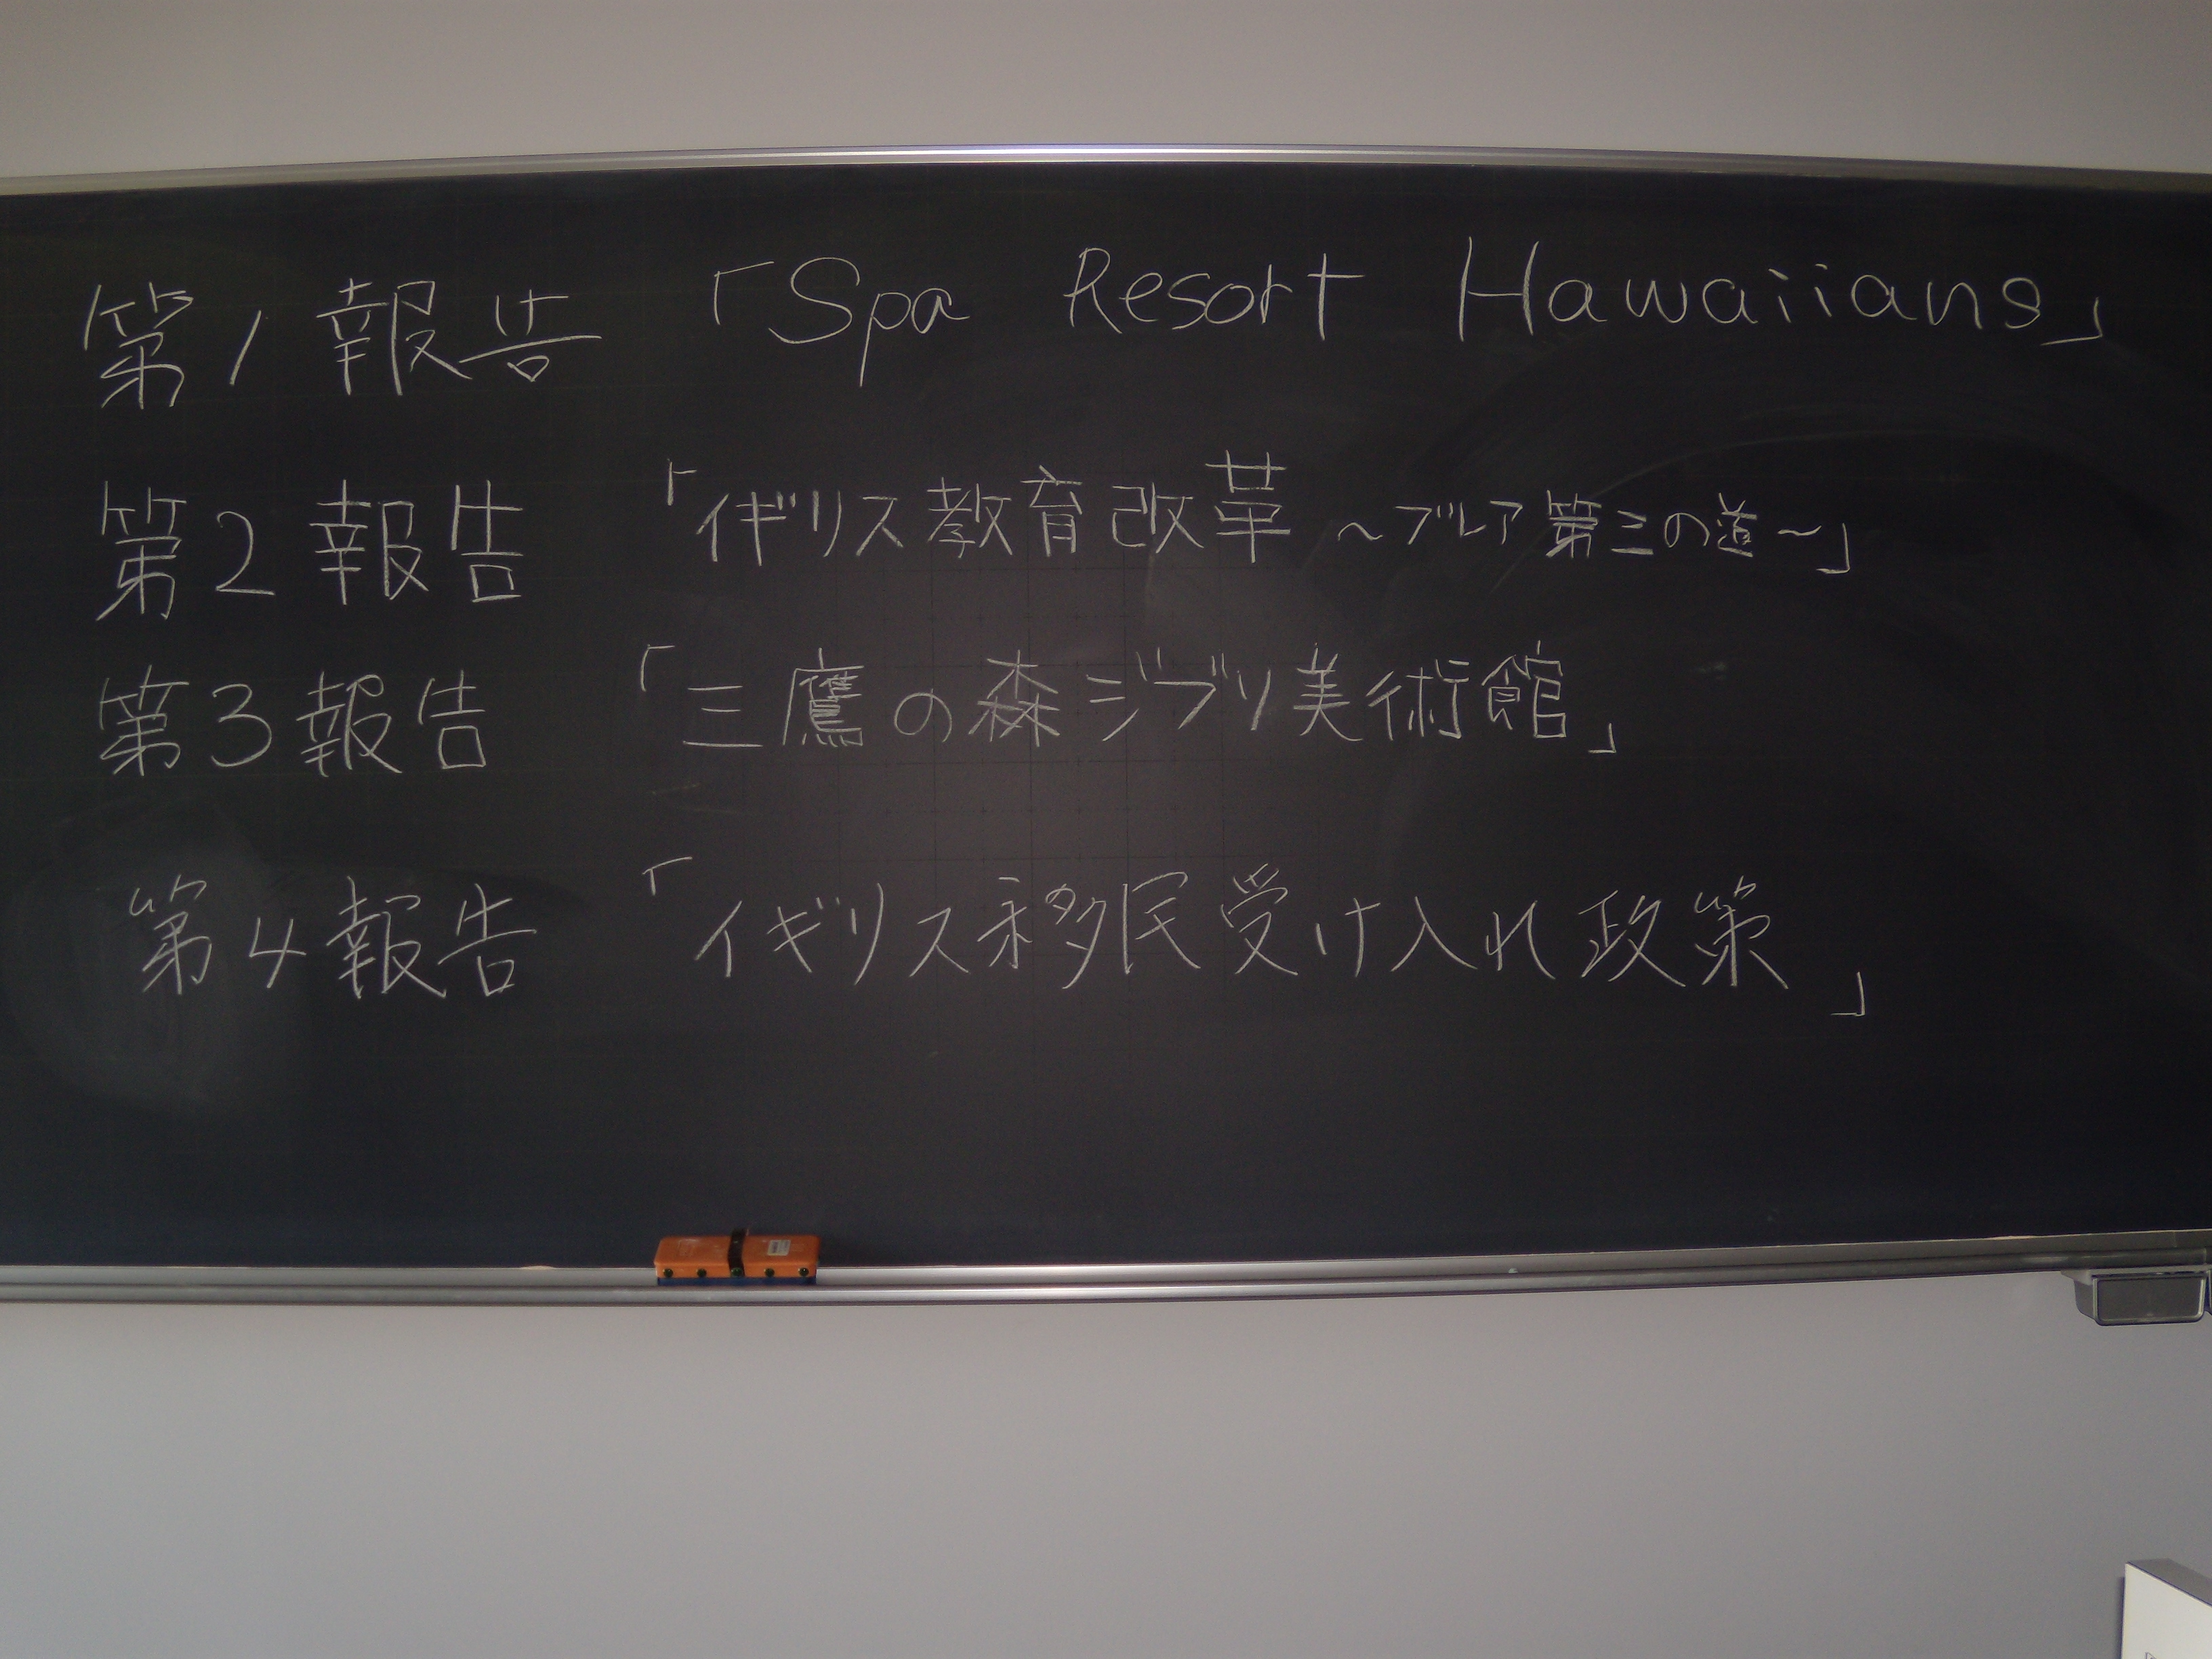 第1報告 「Spa Resort Hawaiians」
第2報告 「イギリス教育改革 ～ブレア第三の道～」
第3報告 「三鷹の森ジブリ美術館」
第4報告 「イギリス移民受け入れ政策」